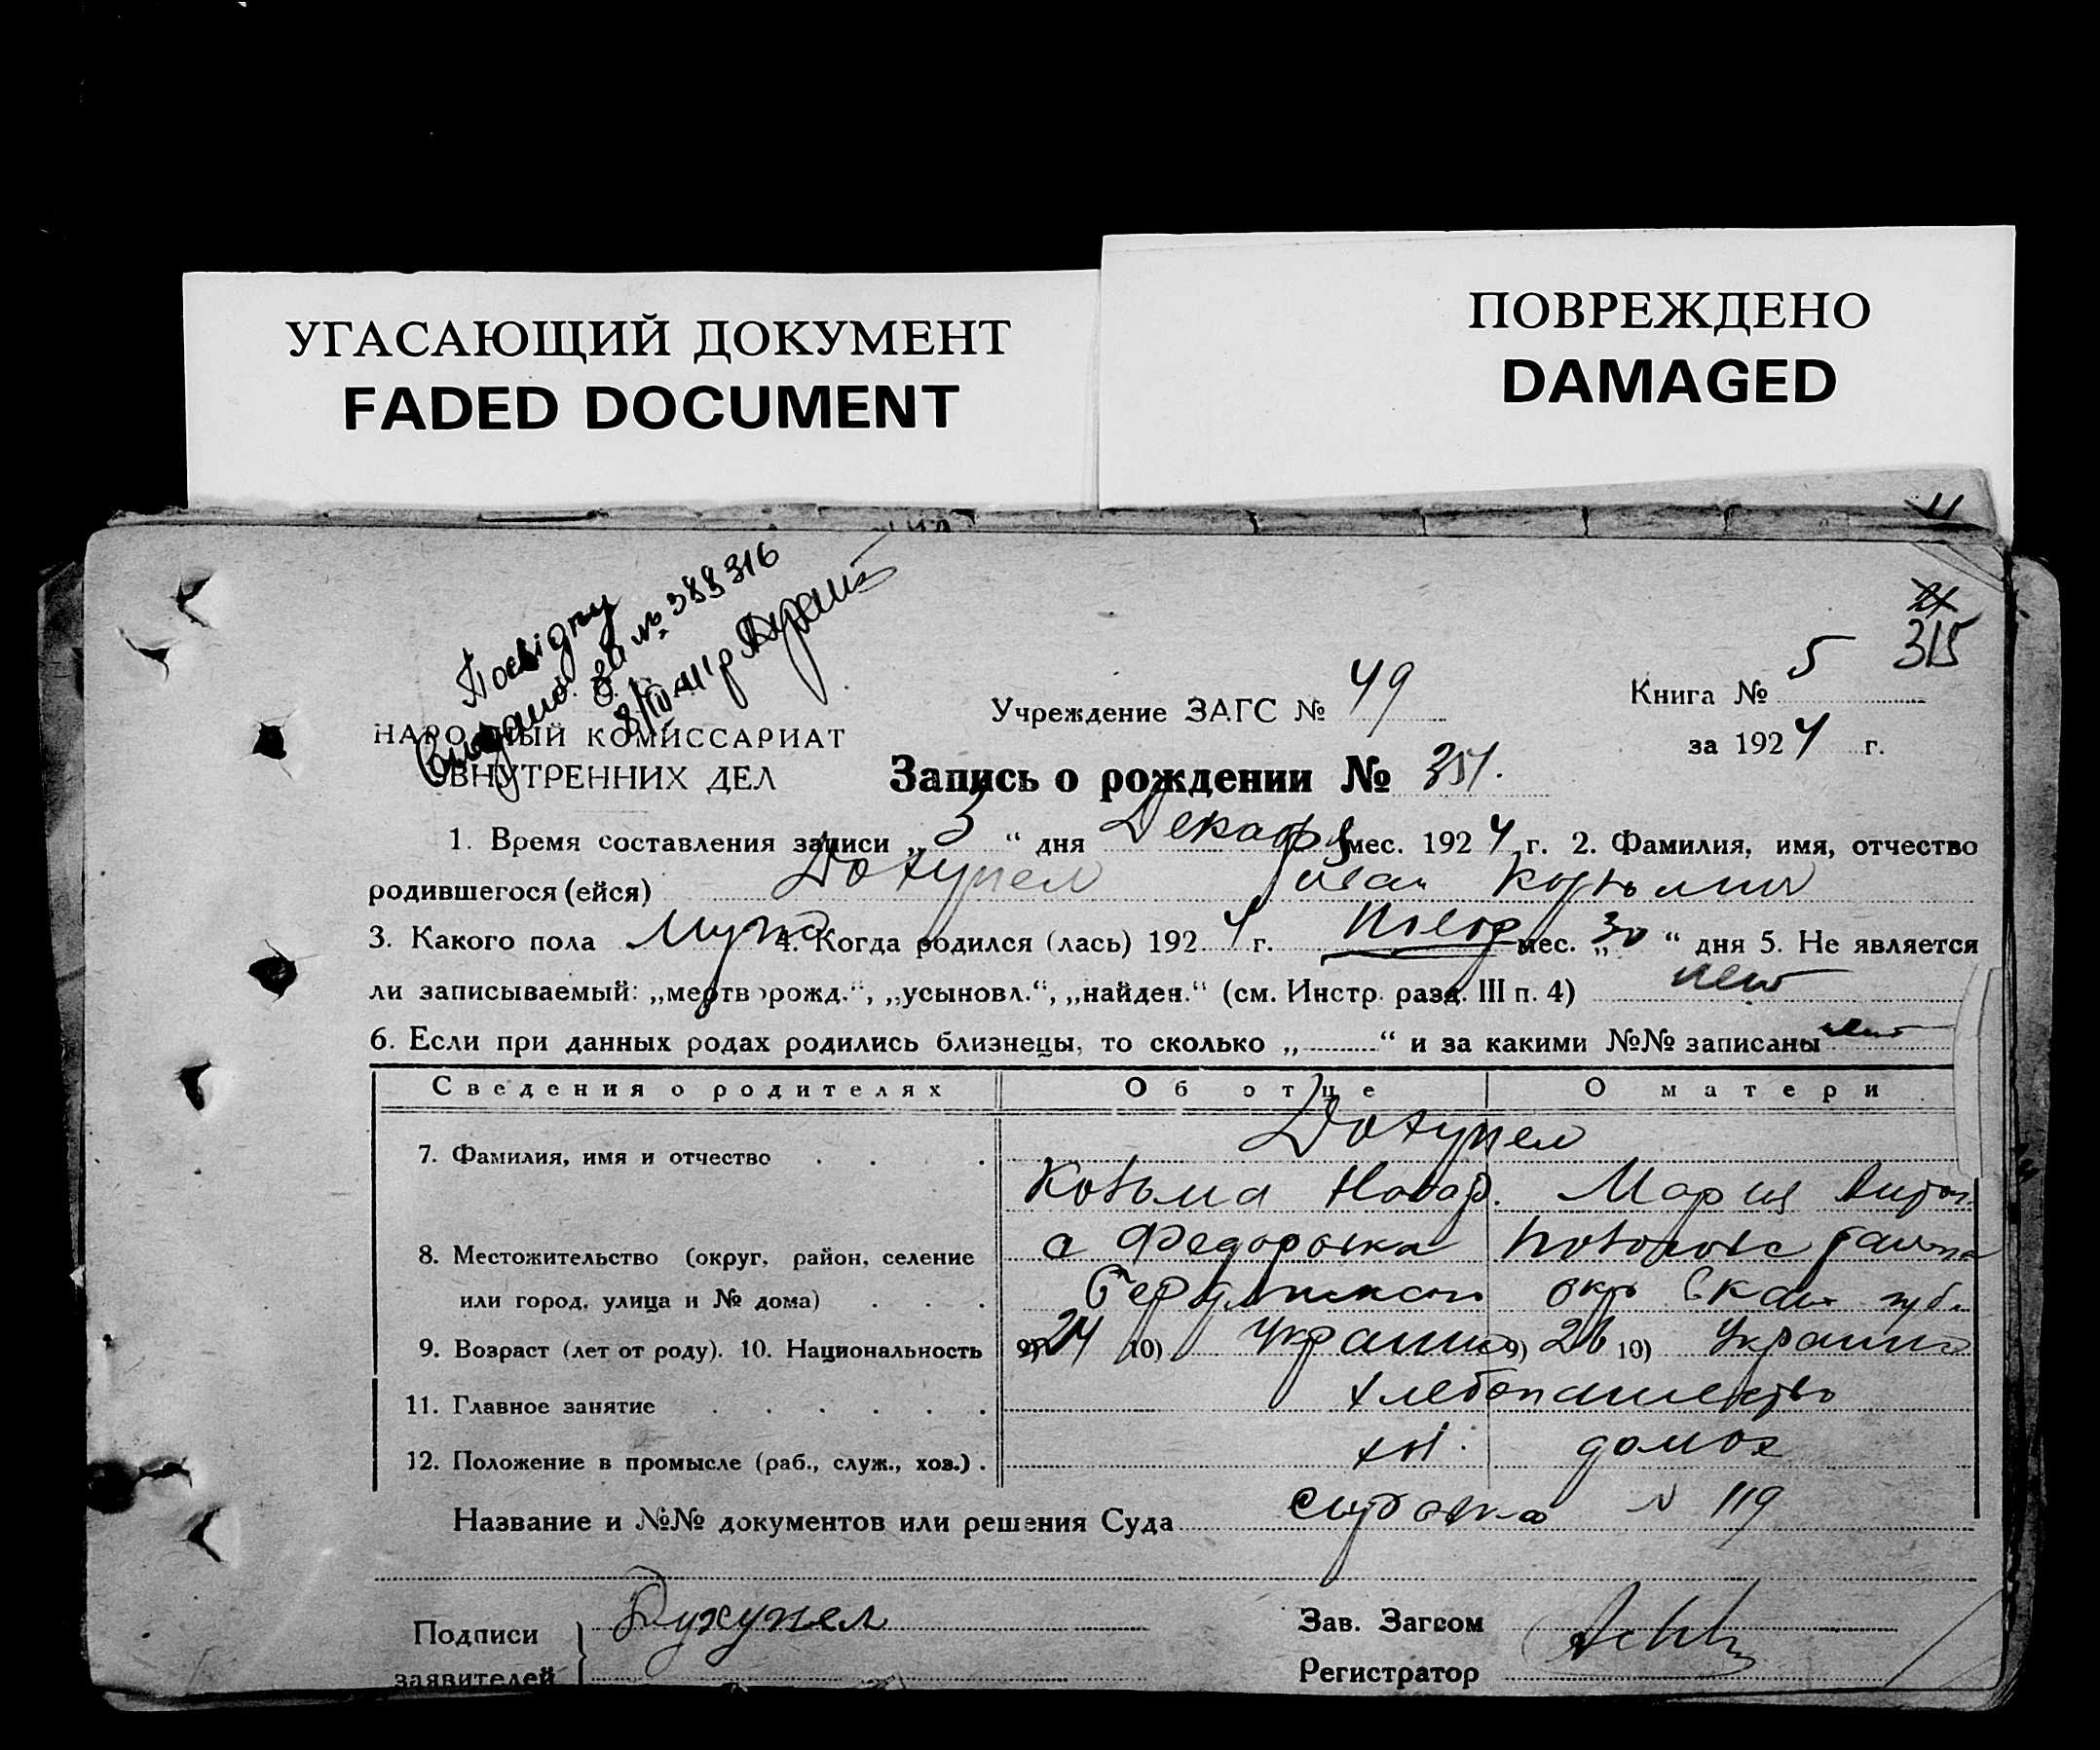 УГАСАЮЩИЙ ДОКУМЕНТ
FADED DOCUMENT
ПОВРЕЖДЕНО
DAMAGED
315
Посвідку
Видано за № 388316
Учреждение ЗАГС № 49
Книга № 5
за 1924 г.
НАРОДНЫЙ КОМИССАРИАТ
ВНУТРЕННИХ ДЕЛ
Запись о рождении № 351.
1. Время составления записи „ 3 “ дня Декабр мес. 1924 г. 2. Фамилия, имя, отчество
родившегося (ейся) Иван Козьмич
3. Какого пола Мужс 4. Когда родился (лась) 1924 г. Нояб мес. „ 30 “ дня 5. Не является
ли записываемый: „мертворожд.“, „усыновл.“, „найден.“ (см. Инстр. разд. III п. 4) нет
6. Если при данных родах родились близнецы, то сколько „ “ и за какими №№ записаны нет
Сведения о родителях Об отце О матери
7. Фамилия, имя и отчество
Козьма Назар. Мария
8. Местожительство (округ, район, селение с Федоровка района
или город, улица и № дома) окр губ.
9. Возраст (лет от роду). 10. Национальность 9) 24 10) Украин 9) 26 10) Украин
11. Главное занятие хлебопашество
12. Положение в промысле (раб., служ., хоз.) хоз. домох
Название и №№ документов или решения Суда справка № 119
Подписи
заявителей
Зав. Загсом
Регистратор